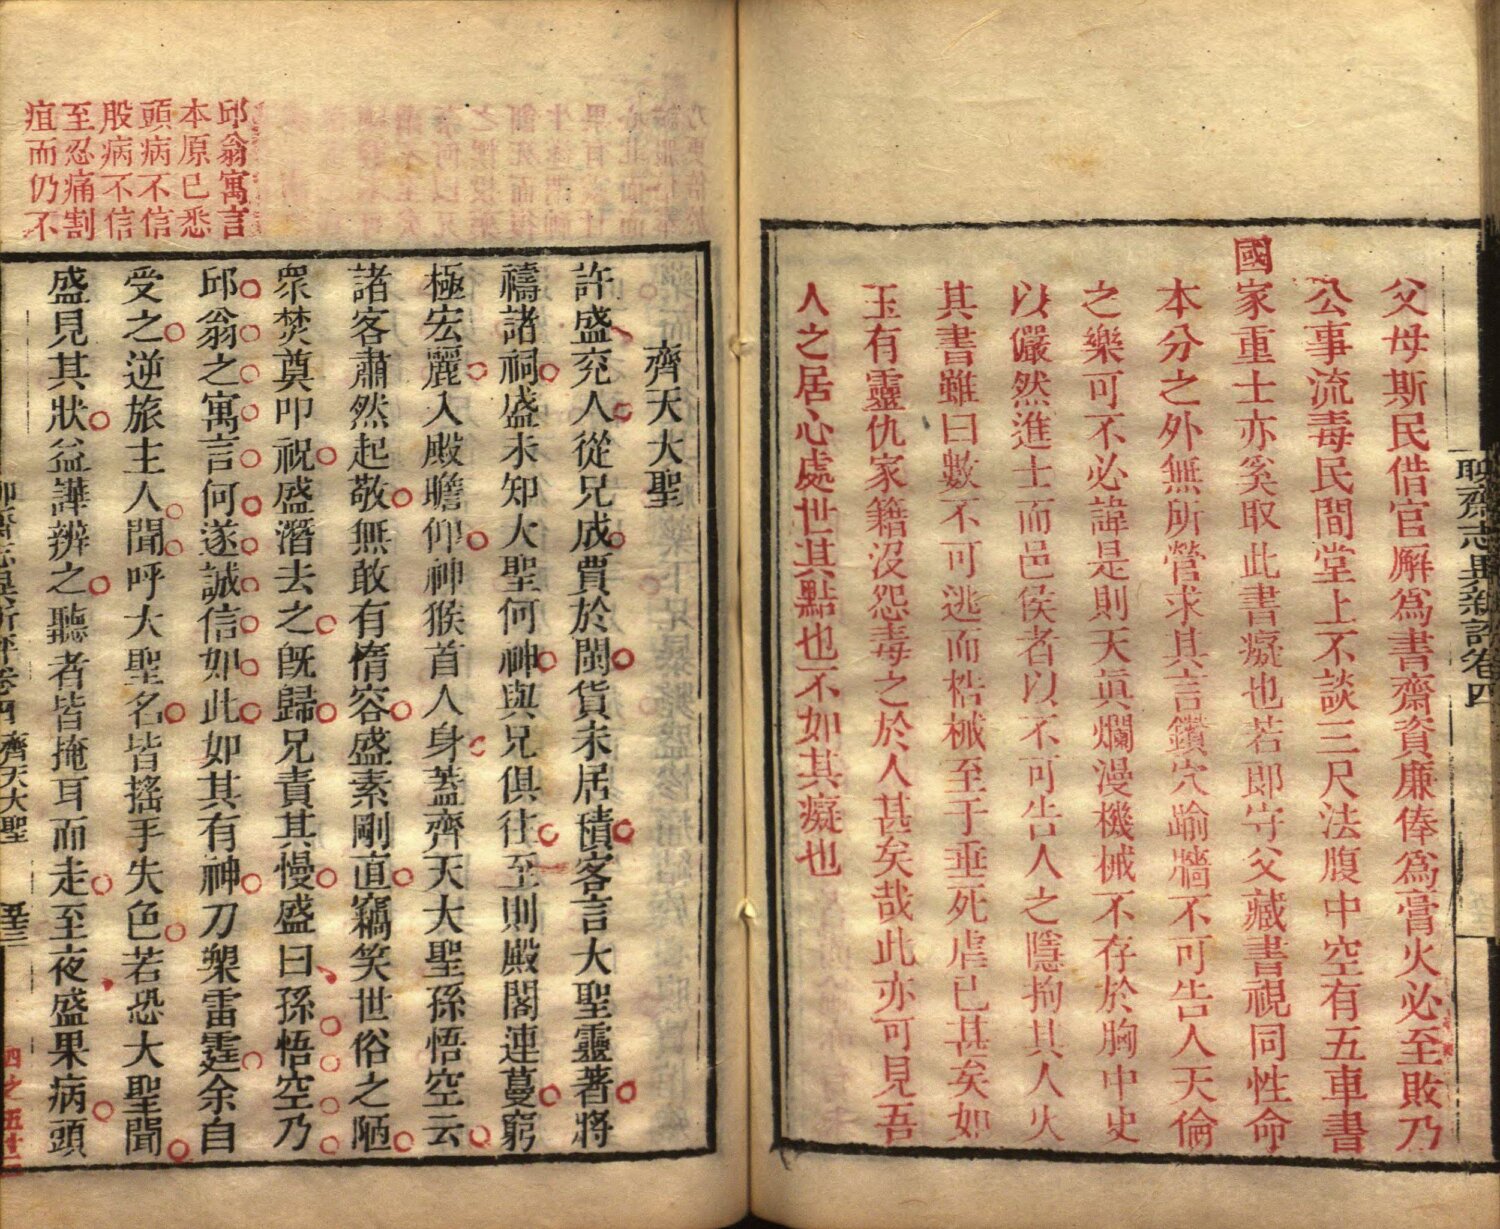 聊齋志異新評卷四
父母斯民借官廨爲書齋資廉俸爲膏火必至敗乃
公事流毒民間堂上不談三尺法腹中空有五車書
國家重士亦奚取此書癡也若郎守父藏書視同性命
本分之外無所營求其言鑽穴踰牆不可告人天倫
之樂可不必諱是則天眞爛漫機械不存於胸中史
以儼然進士而邑侯者以不可告人之隱拘其人火
其書雖曰數不可逃而桎梏至于垂死虐已甚矣如
玉有靈仇家籍沒怨毒之於人甚矣哉此亦可見吾
人之居心處世其黠也不如其癡也
邱翁寓言
本原已悉
頭病不信
股病不信
至忍痛割
疽而仍不
齊天大聖
許盛兖人從兄成賈於閩貨未居積客言大聖靈著將
禱諸祠盛未知大聖何神與兄俱往至則殿閣連蔓窮
極宏麗入殿瞻仰神猴首人身蓋齊天大聖孫悟空云
諸客肅然起敬無敢有惰容盛素剛直竊笑世俗之陋
衆焚奠叩祝盛潛去之旣歸兄責其慢盛曰孫悟空乃
邱翁之寓言何遂誠信如此如其有神刀槊雷霆余自
受之逆旅主人聞呼大聖名皆搖手失色若恐大聖聞
盛見其狀益譁辨之聽者皆掩耳而走至夜盛果病頭
聊齋志異新評卷四 齊天大聖 五十三
四之五十三